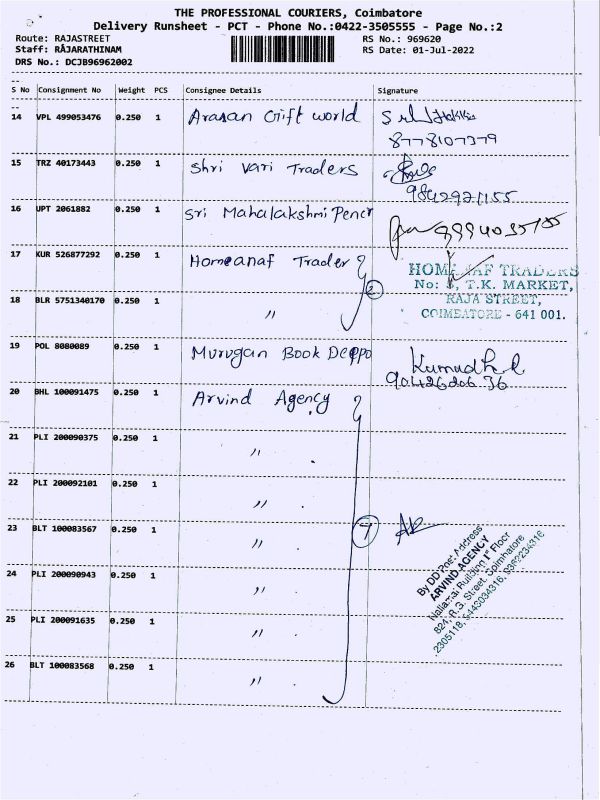 THE PROFESSIONAL COURIERS, Coimbatore
Delivery Runsheet - PCT - Phone No.:0422-3505555 - Page No.:2
Route: RAJASTREET
RS No.: 969620
Staff: RAJARATHINAM
RS Date: 01-Jul-2022
DRS No.: DCJB96962002
S No Consignment No Weight PCS Consignee Details Signature
14 VPL 499053476 0.250 1 Arasan Gift world
8778107379
15 TRZ 40173443 0.250 1 Shri Vari Traders
9842921155
16 UPT 2061882 0.250 1 Sri Mahalakshmi
17 KUR 526877292 0.250 1 Homeanaf Trader
2
HOMEANAF TRADERS
No: T.K. MARKET,
RAJA STREET,
COIMBATORE - 641 001.
18 BLR 5751340170 0.250 1 "
19 POL 8080089 0.250 1 Murugan Book Deppo
20 BHL 100091475 0.250 1 Arvind Agency
21 PLI 200090375 0.250 1 "
22 PLI 200092101 0.250 1 "
23 BLT 100083567 0.250 1 "
7
By DD Post Address
ARVIND AGENCY
Building Ist Floor
824, R.G. Street, Coimbatore
24 PLI 200090943 0.250 1 "
25 PLI 200091635 0.250 1 "
26 BLT 100083568 0.250 1 "